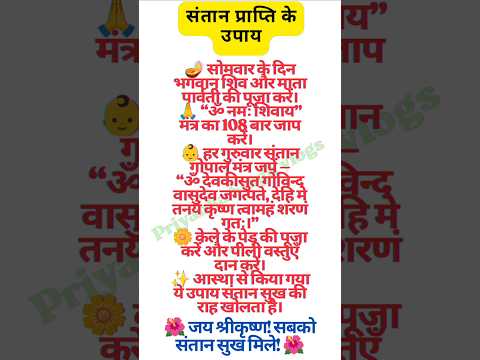 संतान प्राप्ति के
उपाय
🪔 सोमवार के दिन
भगवान शिव और माता
पार्वती की पूजा करें।
🙏 “ॐ नमः शिवाय”
मंत्र का 108 बार जाप
करें।
👶 हर गुरुवार संतान
गोपाल मंत्र जपें –
“ॐ देवकीसुत गोविन्द
वासुदेव जगत्पते, देहि मे
तनयं कृष्ण त्वामहं शरणं
गतः।”
🌼 केले के पेड़ की पूजा
करें और पीली वस्तुएँ
दान करें।
✨ आस्था से किया गया
ये उपाय संतान सुख की
राह खोलता है।
🌺 जय श्रीकृष्ण! सबको
संतान सुख मिले! 🌺